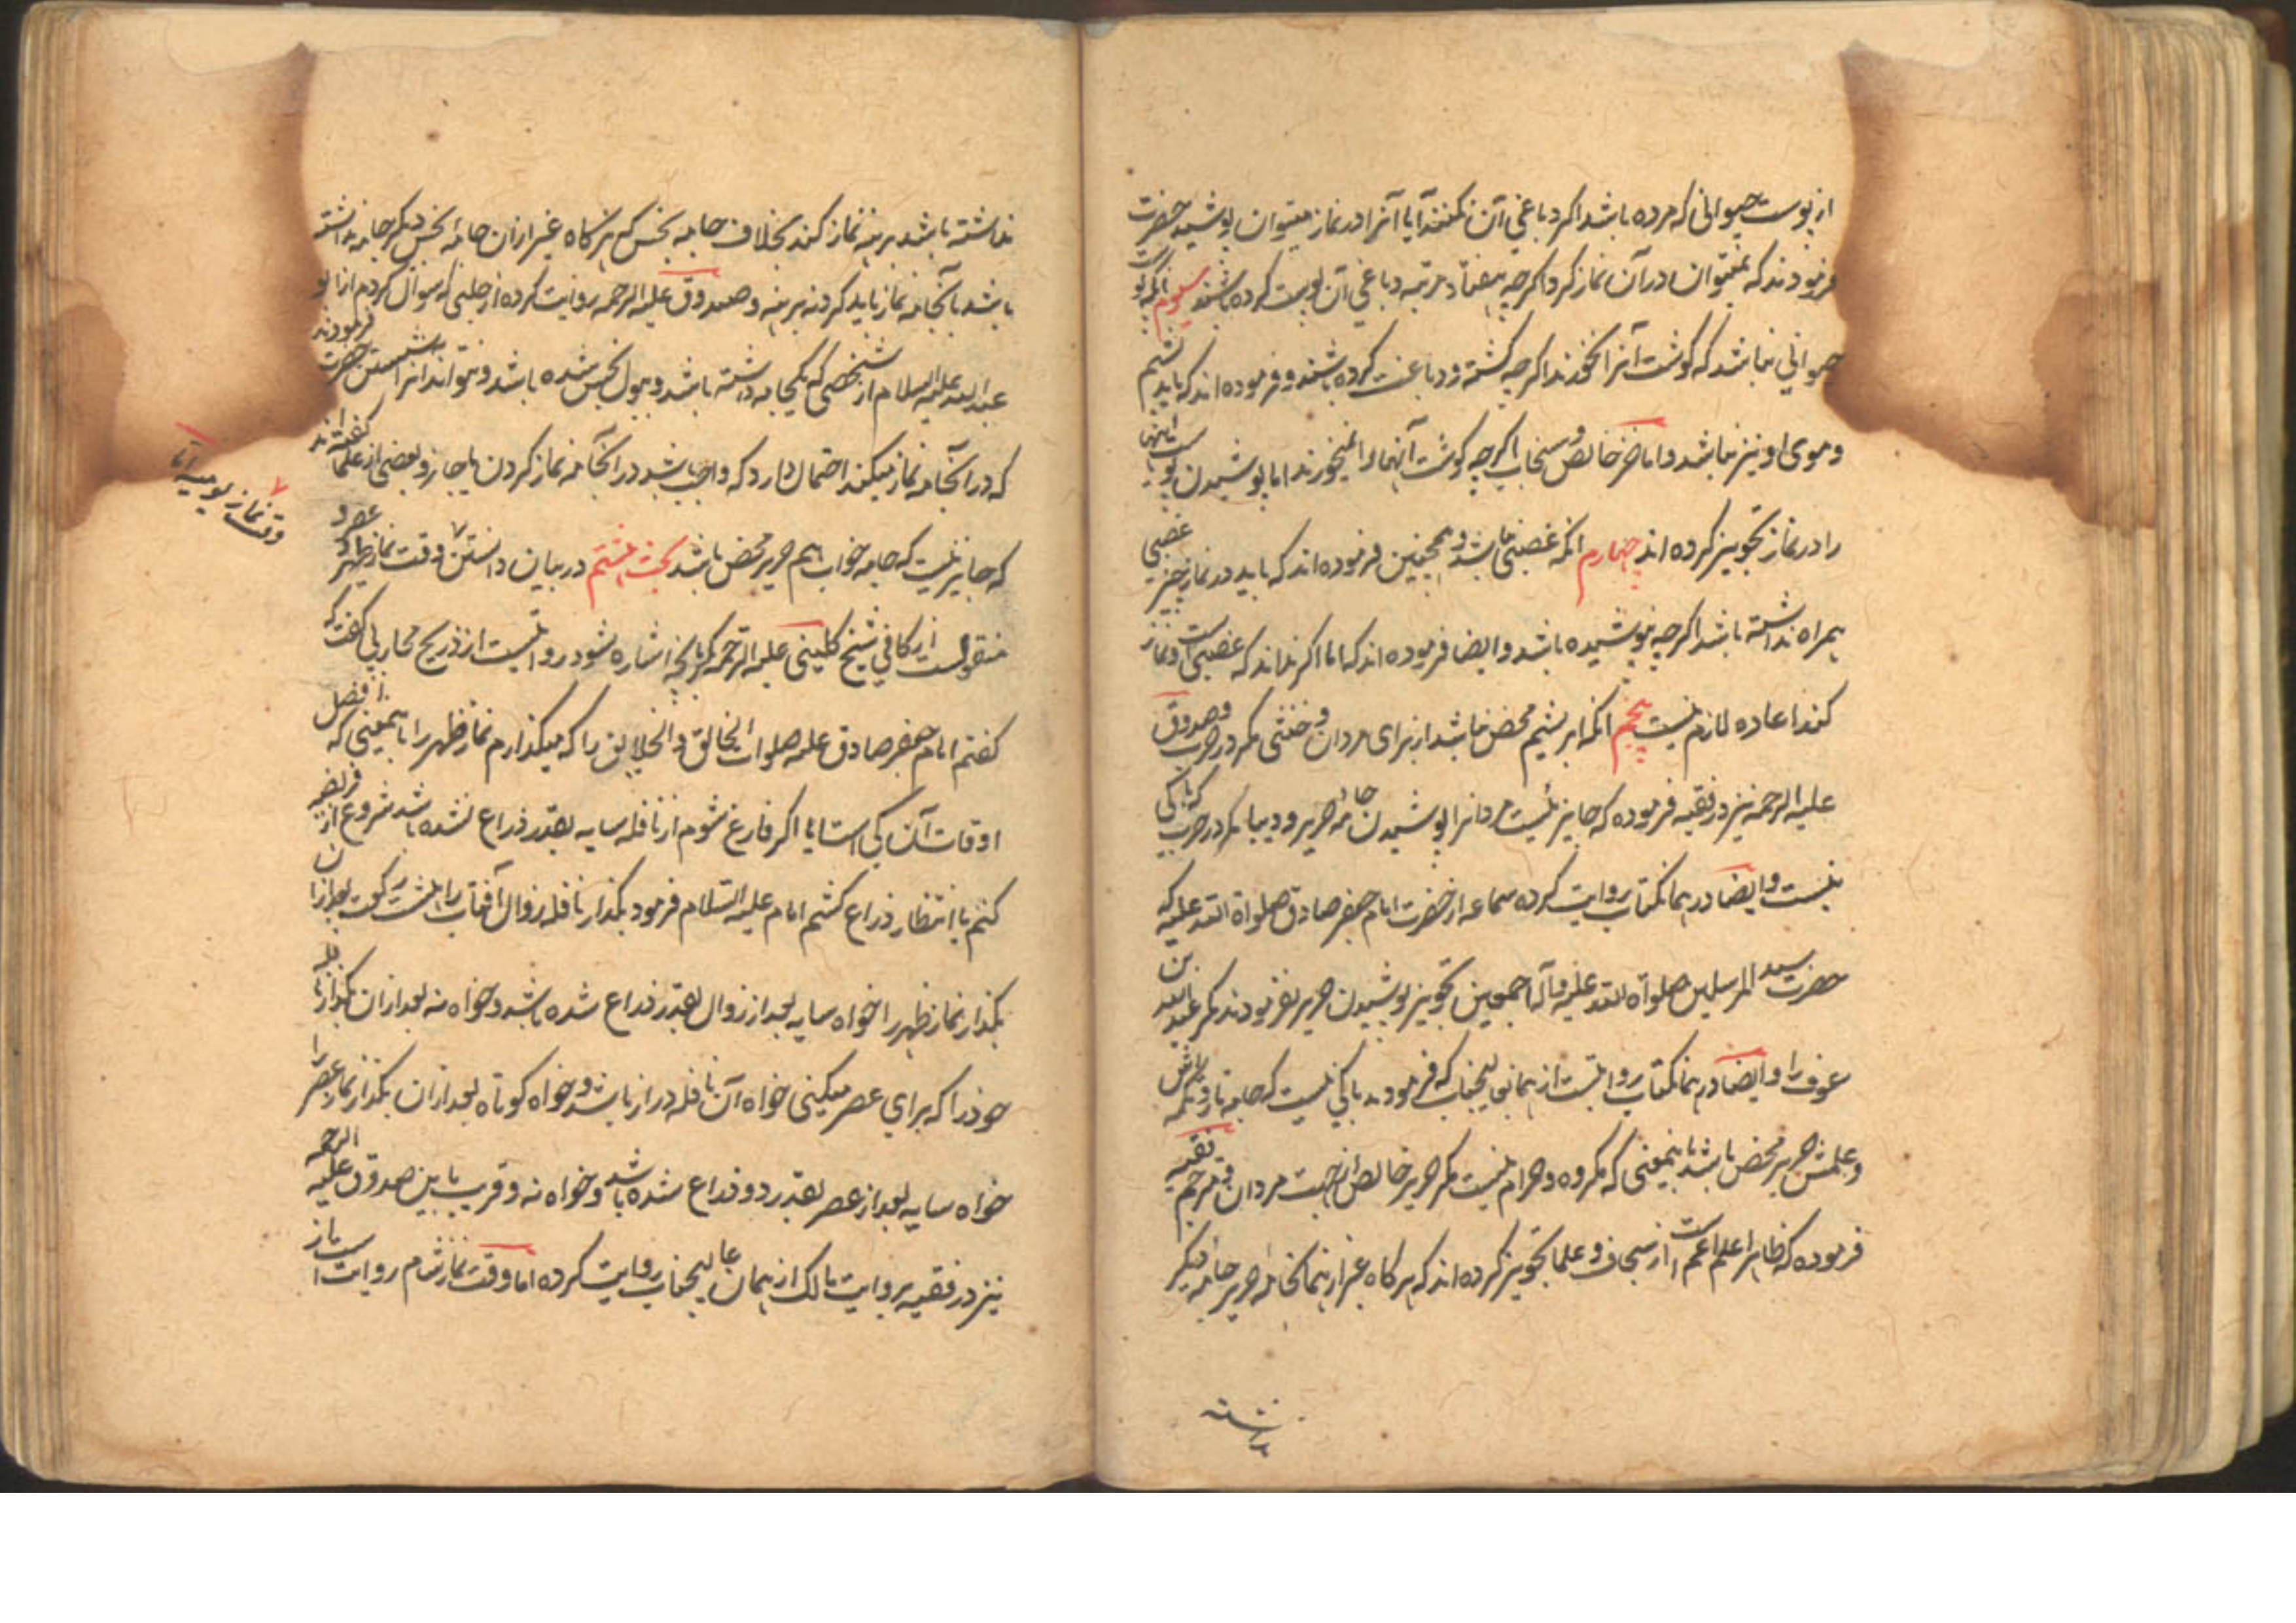 از پوست حیوانی که مرده باشد اکر دباغی آن نکنند آیا آنرا در نماز میتوان پوشید حضرت
فرمودند که نمیتوان در آن نماز کرد اکرچه هفتاد مرتبه دباغی آن پوست کرده باشند سیوم آنکه پوست
حیوانی نباشد که کوشت آنرا نخورند اکرچه کشته و دباغت کرده باشند و فرموده اند که باید پشم
و موی او نیز نباشد و اما خز خالص و سنجاب اکرچه کوشت آنهارا نمیخورند اما پوشیدن پوست اینها
را در نماز تجویز کرده اند چهارم آنکه غصبی نباشد و همچنین فرموده اند که باید در نماز چیز غصبی
همراه نداشته باشد اکرچه نپوشیده باشد و ایضا فرموده اند که اما اکر نداند که غصبی است و نماز
کند اعاده لازم نیست پنجم آنکه ابریشم محض نباشد از برای مردان و خنثی مکر در حرب و صدوق
علیه الرحمه نیز در فقیه فرموده که جایز نیست مردانرا پوشیدن جامه حریر و دیبا مکر در حرب که باکی
نیست و ایضا در همانکتاب روایت کرده سماعه از حضرت امام جعفر صادق صلواة الله علیه که
حضرت سید المرسلین صلواة الله علیه و آله اجمعین تجویز پوشیدن حریر نفرمودند مکر عبد الله بن
عوف را و ایضا در همانکتاب روایتست از همان عالیجناب که فرمودند باکی نیست که جامه تارو
و علمش حریر محض باشد باینمعنی که مکروه و حرام نیست مکر حریر خالص از جهت مردان و مترجم فقیه
فرموده که ظاهرا علم اعم است از سجاف و علما تجویز کرده اند که هرکاه غیر از همانجامه حریر جامه دیکر
نداشته
نداشته باشد برهنه نماز کند بخلاف جامه نجس که هرکاه غیر از آن جامه نجس دیکر جامه نداشته
باشد با آنجامه نماز باید کرد نه برهنه و صدوق علیه الرحمه روایت کرده از حلبی که سوال کردم از ابو
عبد الله علیه السلام از شخصی که یکجامه داشته باشد و ببول نجس شده باشد و نتواند آنرا شستن حضرت فرمودند
که در آنجامه نماز میکند احتمال دارد که واجب باشد در آنجامه نماز کردن یا جایز و بعضی از علما کفته اند
که جایز نیست که جامه خواب هم حریر محض باشد بحث هشتم در بیان دانستن وقت نماز ظهر و عصر و
منقولست از کافی شیخ کلینی علیه الرحمه که اشاره شود روایتست از ذریح محاربی کفت که
کفتم امام جعفر صادق علیه صلوات الخالق و الخلایق را که میکذارم نماز ظهر را باینمعنی که افضل
اوقات آن کی است آیا اکر فارغ شوم از نافله سایه بقدر ذراع نشده باشد شروع از فریضه
کنم یا انتظار ذراع کشم امام علیه السلام فرمود بکذار نافله زوال آفتاب را هشت رکعت بعد از آن
بکذار نماز ظهر را خواه سایه بعد از زوال بقدر ذراع شده باشد و خواه نه بعد از آن بکذار نافله
خود را که برای عصر میکنی خواه آن نافله دراز باشد و خواه کوتاه بعد از آن بکذار نماز عصر را
خواه سایه بعد از عصر بقدر دو ذراع شده باشد و خواه نه و قریب باین صدوق علیه الرحمه
نیز در فقیه بروایت مالک از همان عالیجناب روایت کرده اما وقت نماز شام روایت است از
وقت نماز یومیه